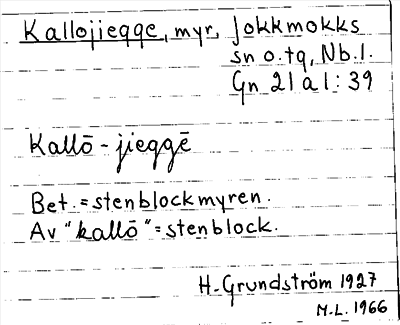 Kallojiegge, myr, Jokkmokks
sn o. tg, Nb. l.
Gn 21 a l: 39
Kallō - jieggē
Bet. = stenblockmyren.
Av "kallō" = stenblock.
H. Grundström 1927
M.L. 1966